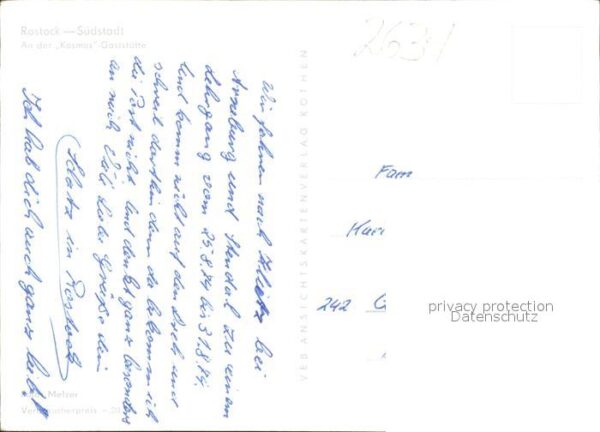 Rostock — Südstadt
An der „Kosmos"-Gaststätte
2631
Wir fahren nach Klietz bei
Arneburg und Stendal zu einem
Lehrgang vom 25.8.74 bis 31.8.74.
Und komm nicht auf den Dreh und
schreib dorthin denn da bekomm ich
die Post nicht. Und denkt ganz besonders
an mich. Viele liebe Grüße dein
Schatz in Rostock
Ich hab dich auch ganz lieb!
VEB ANSICHTSKARTENVERLAG KÖTHEN
Fam
242
Foto: Melzer
Verbraucherpreis
privacy protection
Datenschutz